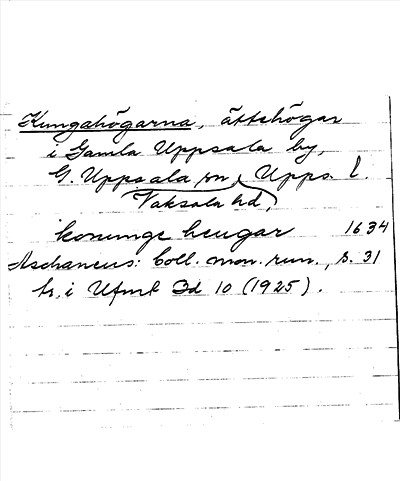 Kungahögarna, ättehögar
i Gamla Uppsala by,
G. Uppsala sn, Upps. l.
Vaksala hd,
konunge heugar 1634
Aschaneus: Coll. mon. run., s. 31
tr. i Ufmt Bd 10 (1925).